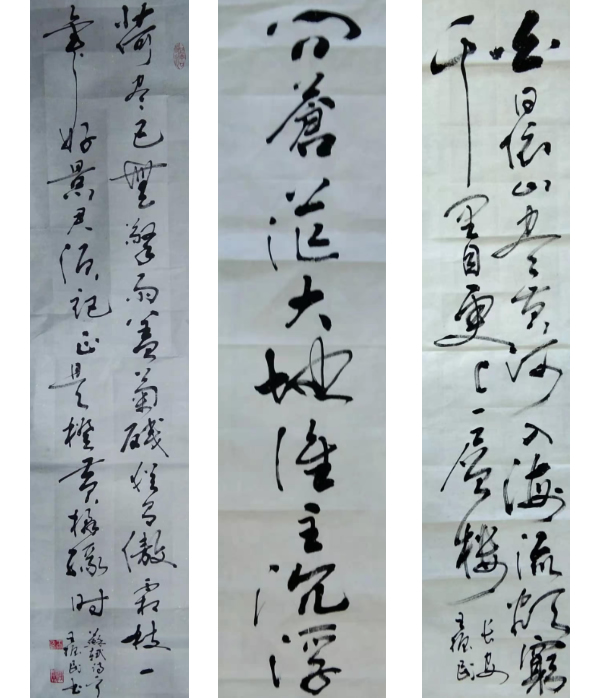 白日依山尽黄河入海流欲穷
千里目更上一层楼
长安
问蒼茫大地谁主沉浮
荷尽已無擎雨盖菊残犹有傲霜枝一
年好景君须记正是橙黄橘绿时